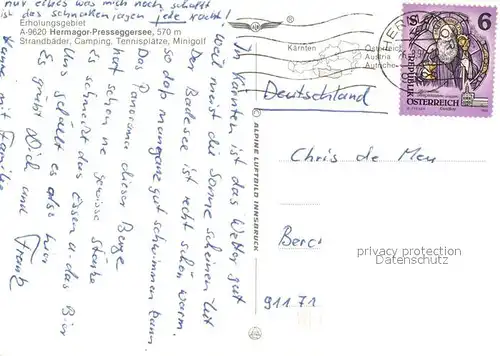 nur etwas was mich noch schafft
ist das schnakenjagen jede Nacht!
Erholungsgebiet
A-9620 Hermagor-Presseggersee, 570 m
Strandbäder, Camping, Tennisplätze, Minigolf
Kärnten
Österreich
Austria
Autriche
Deutschland
6
REPUBLIK
ÖSTERREICH
In Kärnten ist das Wetter gut
weil meist die Sonne scheinen tut
Der Badesee ist recht schön warm.
so daß man ganz gut schwimmen kann.
Das Panorama dieser Berge
hat schon ne gewisse Stärke
Es schmeckt das Essen u. das Bier
Uns gefällt es also hier
Es grüßt Dich und
Familie
© ALPINE LUFTBILD INNSBRUCK
Chris de Meu
Berc
91171
privacy protection
Datenschutz